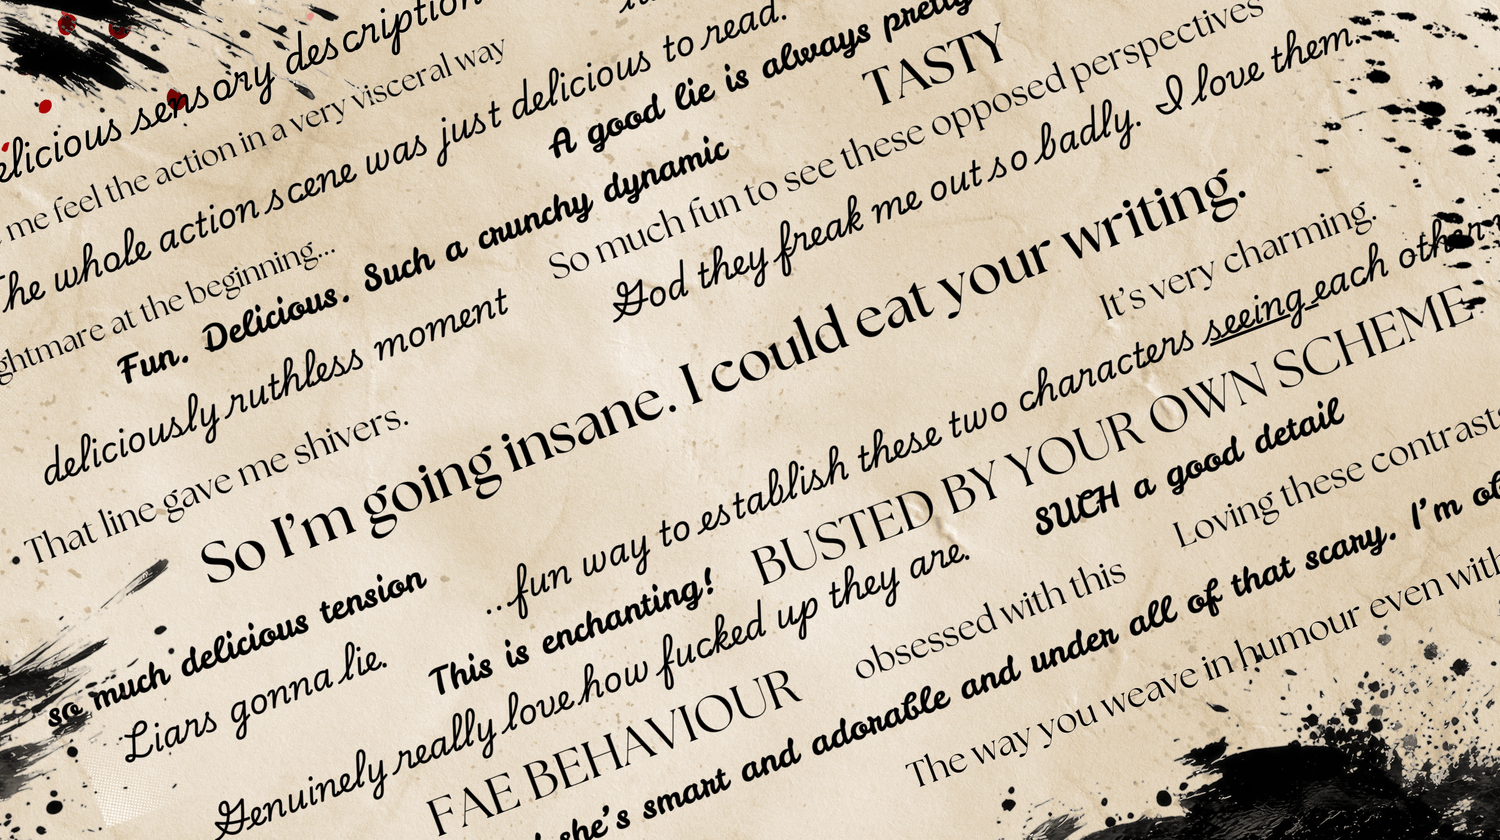 delicious sensory description
me feel the action in a very visceral way
The whole action scene was just delicious to read.
A good lie is always pretty
TASTY
at the beginning...
Fun. Delicious. Such a crunchy dynamic
So much fun to see these opposed perspectives
deliciously ruthless moment
God they freak me out so badly. I love them.
• That line gave me shivers.
So I'm going insane. I could eat your writing.
It's very charming.
so much delicious tension
...fun way to establish these two characters seeing each other
Liars gonna lie.
This is enchanting!
BUSTED BY YOUR OWN SCHEME
Genuinely really love how fucked up they are.
SUCH a good detail
FAE BEHAVIOUR
obsessed with this
Loving these contrasts
she's smart and adorable and under all of that scary. I'm
The way you weave in humour even with